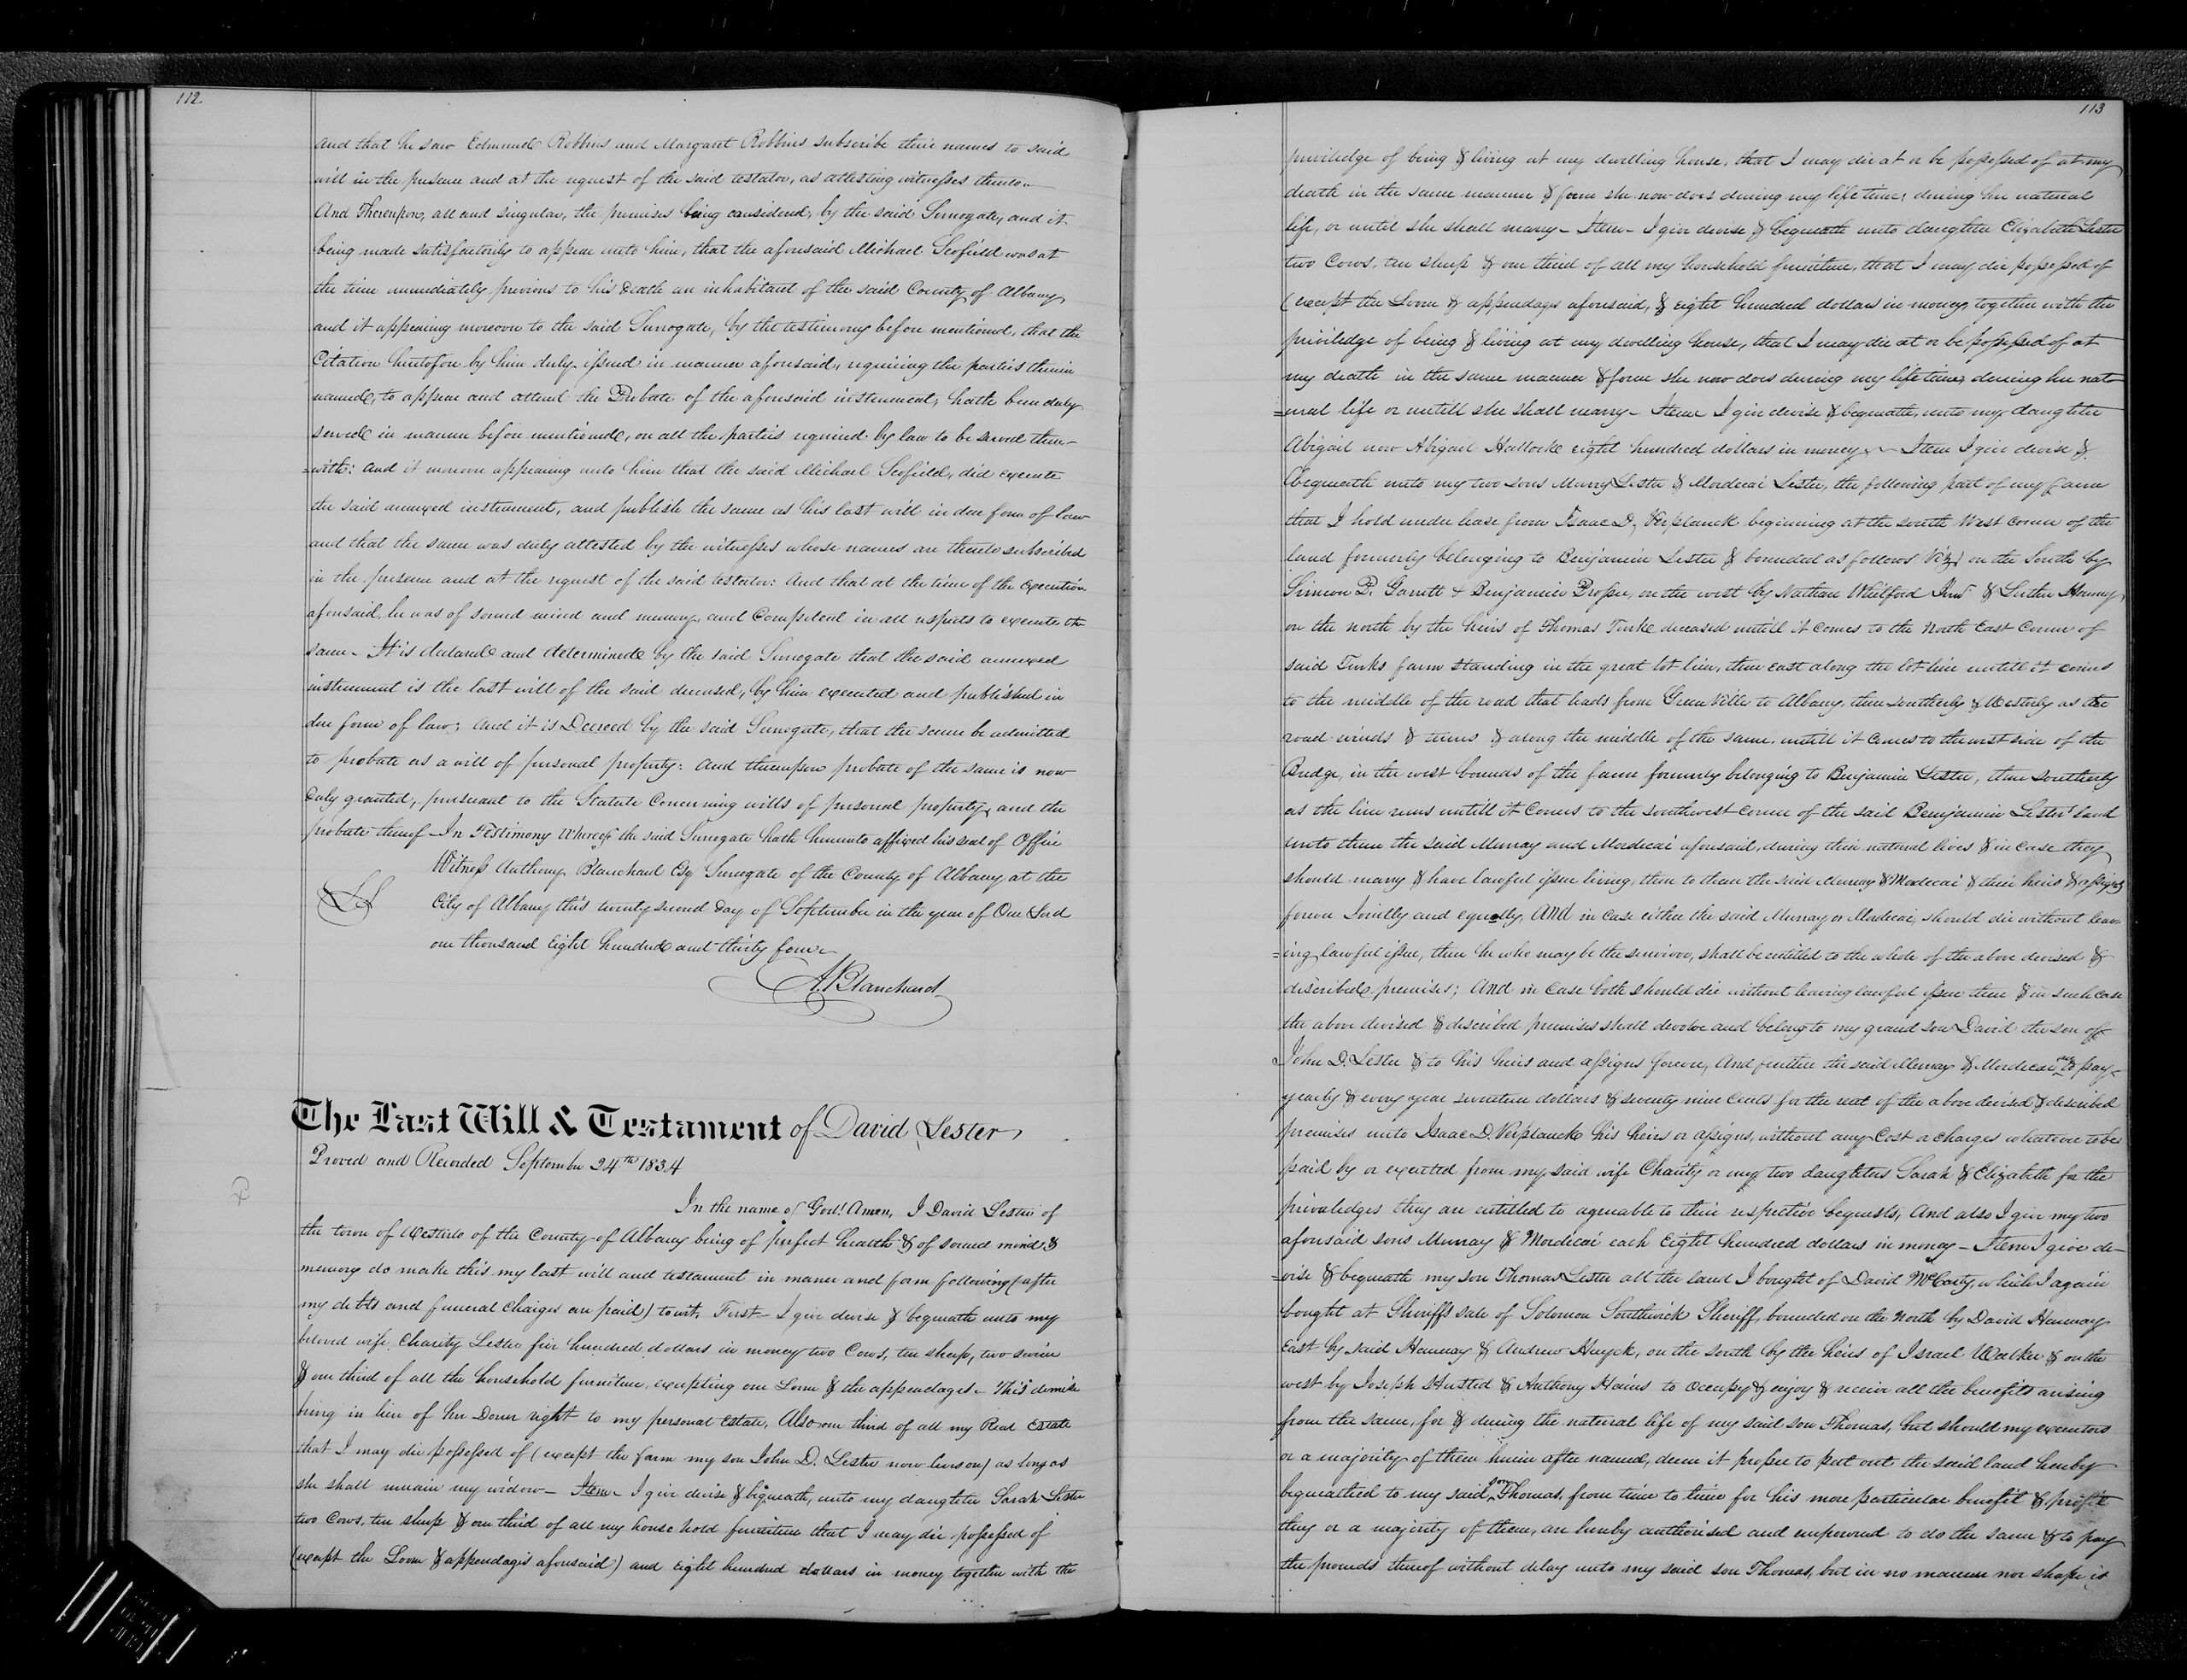 112
and that he saw Edmund Robbins and Margaret Robbins subscribe their names to said
will in the presence and at the request of the said testator, as attesting witnesses thereto.
And Thereupon, all and singular, the premises being considered, by the said Surrogate, and it
being made satisfactorily to appear unto him, that the aforesaid Michael Scofield was at
the time immediately previous to his death an inhabitant of the said County of Albany
and it appearing moreover to the said Surrogate, by the testimony before mentioned, that the
Citation heretofore by him duly issued in manner aforesaid, requiring the parties therein
named, to appear and attend the Probate of the aforesaid instrument, hath been duly
served in manner before mentioned, on all the parties required by law to be served there-
=with: and it moreover appearing unto him that the said Michael Scofield, did execute
the said annexed instrument, and publish the same as his last will in due form of law
and that the same was duly attested by the witnesses whose names are thereto subscribed
in the presence and at the request of the said testator: And that at the time of the execution
aforesaid, he was of sound mind and memory, and Competent in all respects to execute the
same. It is declared and determined by the said Surrogate that the said annexed
instrument is the last will of the said deceased, by him executed and published in
due form of law; and it is Decreed by the said Surrogate, that the same be admitted
to probate as a will of personal property: and thereupon probate of the same is now
duly granted, pursuant to the Statute Concerning wills of personal property, and the
probate thereof In Testimony Whereof the said Surrogate hath hereunto affixed his seal of Office
Witness Anthony Blanchard Esq Surrogate of the County of Albany at the
LS City of Albany this twenty second day of September in the year of Our Lord
one thousand Eight hundred and thirty four
A. Blanchard
The Last Will & Testament of David Lester
Proved and Recorded September 24th 1834
In the name of God! Amen, I David Lester of
the town of Westerlo of the County of Albany being of perfect health & of sound mind &
memory do make this my last will and testament in maner and form following (after
my debts and funeral Charges are paid) to wit, First I give devise & bequeath unto my
beloved wife Charity Lester five hundred dollars in money two Cows, ten sheep, two swine
& one third of all the household furniture, excepting one Loom & the appendages. This demise
being in lieu of her Dower right to my personal estate, Also one third of all my Real Estate
that I may die possessed of (except the farm my son John D. Lester now lives on) as long as
she shall remain my widow— Item— I give devise & bequeath, unto my daughter Sarah Lester
two Cows, ten sheep & one third of all my house hold furniture that I may die possessed of
(except the Loom & appendages aforesaid) and eight hundred dollars in money together with the
113
priviledge of being & living at my dwelling house, that I may die at or be possessed of at my
death in the same manner & form she now does during my life time, during her natural
life, or until she shall marry— Item— I give devise & bequeath unto daughter Elizabeth Lester
two Cows, ten sheep & one third of all my household furniture, that I may die possessed of
(except the Loom & appendages aforesaid, & eight hundred dollars in money, together with the
priviledge of being & living at my dwelling house, that I may die at or be possessed of at
my death in the same manner & form she now does during my life time, during her nat-
=ural life or untill she shall marry— Item I give devise & bequeath, unto my daughter
Abigail now Abigail Hallocke eight hundred dollars in money— Item I give devise &
bequeath unto my two sons Murry Lester & Mordecai Lester, the following part of my farm
that I hold under lease from Isaac D, Verplanck beginning at the South West Corner of the
land formerly belonging to Benjamin Lester & bounded as follows Viz, on the South by
Simeon P. Garrett & Benjamin Prosper, on the west by Nathan Whilford Junr & Luther Hanney
on the north by the heirs of Thomas Turke deceased untill it Comes to the North East Corner of
said Turks farm standing in the great lot line, then east along the lot line untill it comes
to the middle of the road that leads from Green Ville to Albany, then southerly & Westerly as the
road winds & turns & along the middle of the same, untill it Comes to the west side of the
Bridge, in the west bounds of the farm formerly belonging to Benjamin Lester, then southerly
as the line runs untill it Comes to the southwest corner of the said Benjamin Lester's land
unto them the said Murray and Mordecai aforesaid, during their natural lives & in case they
should marry & have lawful issue living, then to them the said Murray & Mordecai & their heirs & assigns
forever Jointly and equally, And in case either the said Murray or Mordecai, should die without leav-
=ing lawful issue, then he who may be the survivor, shall be entitled to the whole of the above devised &
described premises; And in case both should die without leaving lawful issue then & in such case
the above devised & described premises shall devolve and belong to my grand son David the son of
John D. Lester & to his heirs and assigns forever, And further the said Murray & Mordecai are to pay
yearly & every year seventeen dollars & seventy nine Cents for the rent of the above devised & described
premises unto Isaac D. Verplancke his heirs or assigns, without any Cost or charges whatever to be
paid by or exacted from my said wife Charity or my two daughters Sarah & Elizabeth for the
privaledges they are entitled to agreable to their respective bequests, And also I give my two
aforesaid sons Murray & Mordecai each Eight hundred dollars in money— Item I give de-
=vise & bequeath my son Thomas Lester all the land I bought of David McCarty, which I again
bought at Sheriffs sale of Solomon Southwick Sheriff, bounded on the North by David Hannay
East by said Hannay & Andrew Huyck, on the south by the heirs of Israel Walker & on the
west by Joseph Husted & Anthony Hains to occupy & enjoy & receive all the benefits arising
from the same, for & during the natural life of my said son Thomas, but should my executors
or a majority of them herein after named, deem it proper to put out the said land hereby
bequeathed to my said son Thomas, from time to time for his more particular benefit & profit
they or a majority of them, are hereby authorised and empowered to do the same & to pay
the proceeds thereof without delay unto my said son Thomas, but in no manner nor shape is